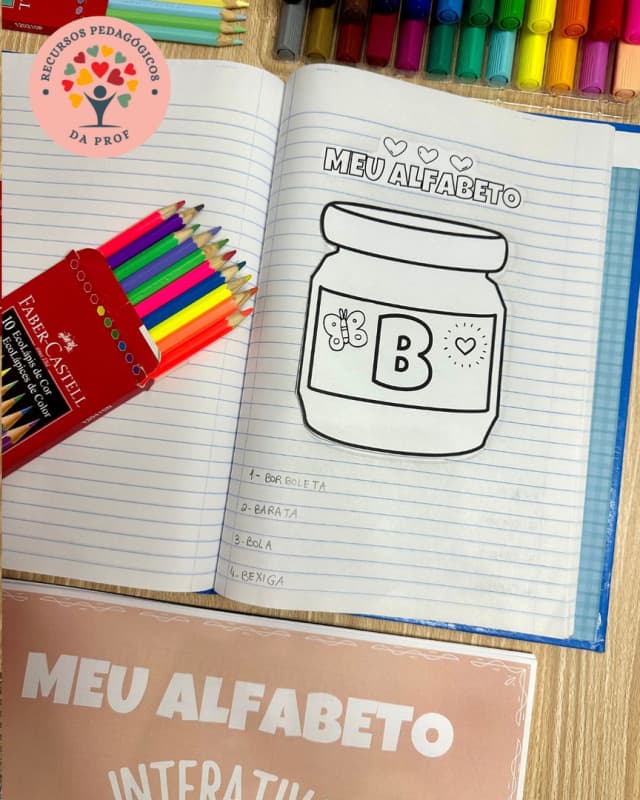 RECURSOS PEDAGÓGICOS
DA PROF
MEU ALFABETO
B
FABER-CASTELL
10 EcoLápis de Cor
EcoLápices de Color
1- BORBOLETA
2- BARATA
3- BOLA
4- BEXIGA
MEU ALFABETO